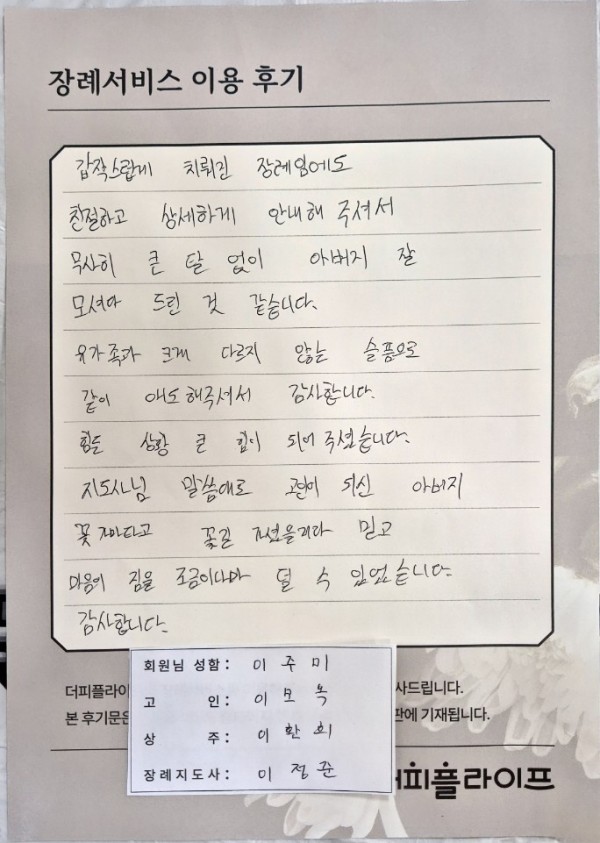 장례서비스 이용 후기
갑작스럽게 치뤄진 장례임에도
친절하고 상세하게 안내해 주셔서
무사히 큰 탈 없이 아버지 잘
모셔다 드린 것 같습니다.
유가족과 크게 다르지 않는 슬픔으로
같이 애도해주셔서 감사합니다.
힘든 상황 큰 힘이 되어 주셨습니다.
지도사님 말씀대로 고인이 되신 아버지
꽃 가마타고 꽃길 가셨을거라 믿고
마음의 짐을 조금이나마 덜 수 있었습니다.
감사합니다.
회원님 성함: 이주미
고 인: 이모옥
상 주: 이환희
장례지도사: 이정준
더피플라이 사드립니다.
본 후기문은 판에 기재됩니다.
더피플라이프